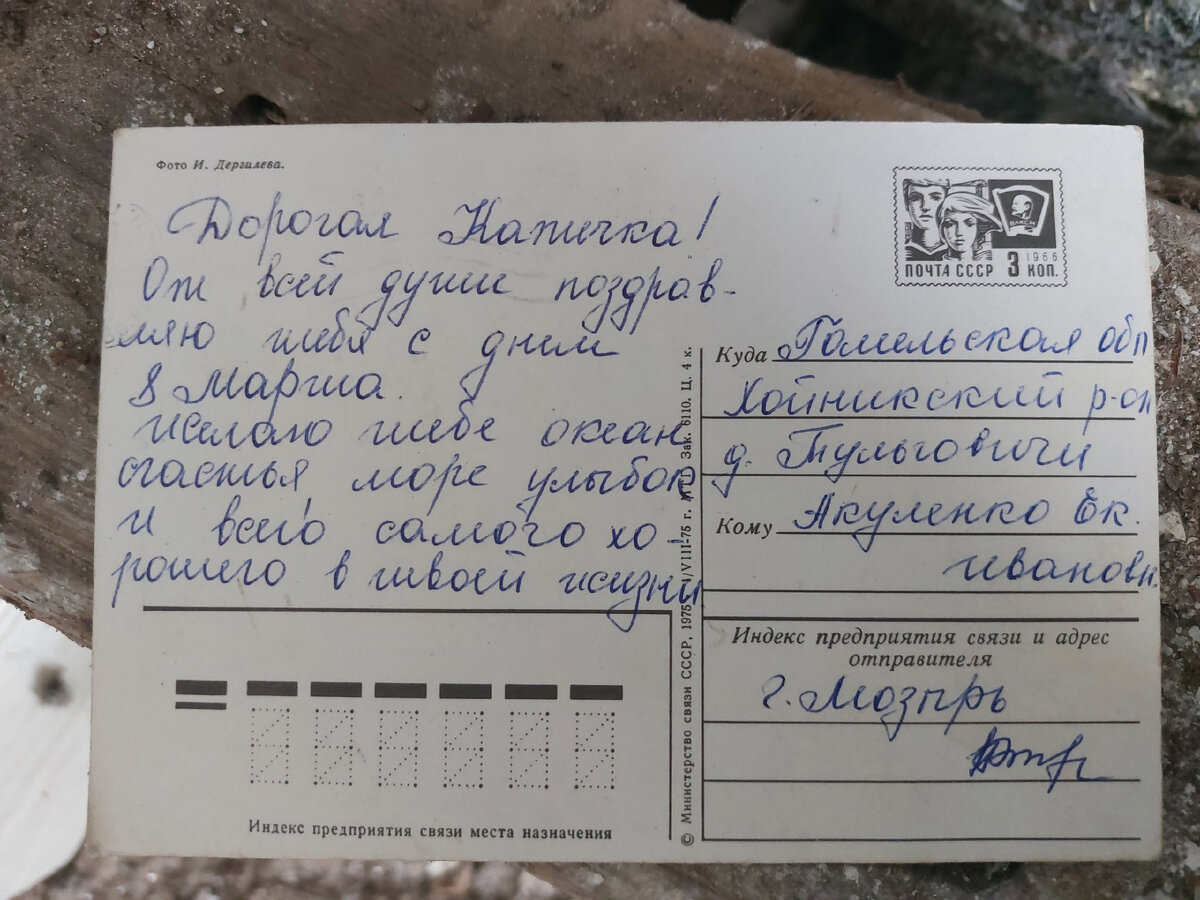 Фото И. Дергилева.
Дорогая Катичка!
От всей души поздрав-
ляю тебя с днем
8 Марта.
Желаю тебе океан
счастья, море улыбок
и всего самого хо-
рошего в твоей жизни
ПОЧТА СССР 3 КОП.
1966
ВЛКСМ
Куда Гомельская обл
Хойникский р-он
д. Тульговичи
Кому Акуленко Ек.
Ивановн.
Индекс предприятия связи и адрес
отправителя
г. Мозырь
Индекс предприятия связи места назначения
© Министерство связи СССР, 1975 VIII-75 г. Зак. 6110. Ц. 4 к.